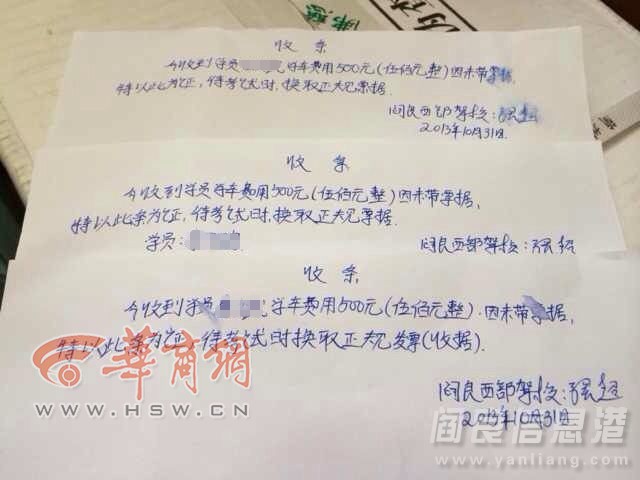 收条
今收到学员 学车费用500元(伍佰元整)因未带票据,
特以此条为证,待考试时,换取正规票据.
阎良西部驾校:强超
2013年10月31日.
收条
今收到学员 学车费用500元(伍佰元整)因未带票据,
特以此条为证,待考试时,换取正规票据.
学员:
阎良西部驾校:强超
收条
今收到学员 学车费用500元(伍佰元整).因未带票据,
特以此条为证,待考试时换取正规发票(收据).
阎良西部驾校:强超
2013年10月31日
华商网
WWW.HSW.CN
阎良信息港
www.yanliang.com